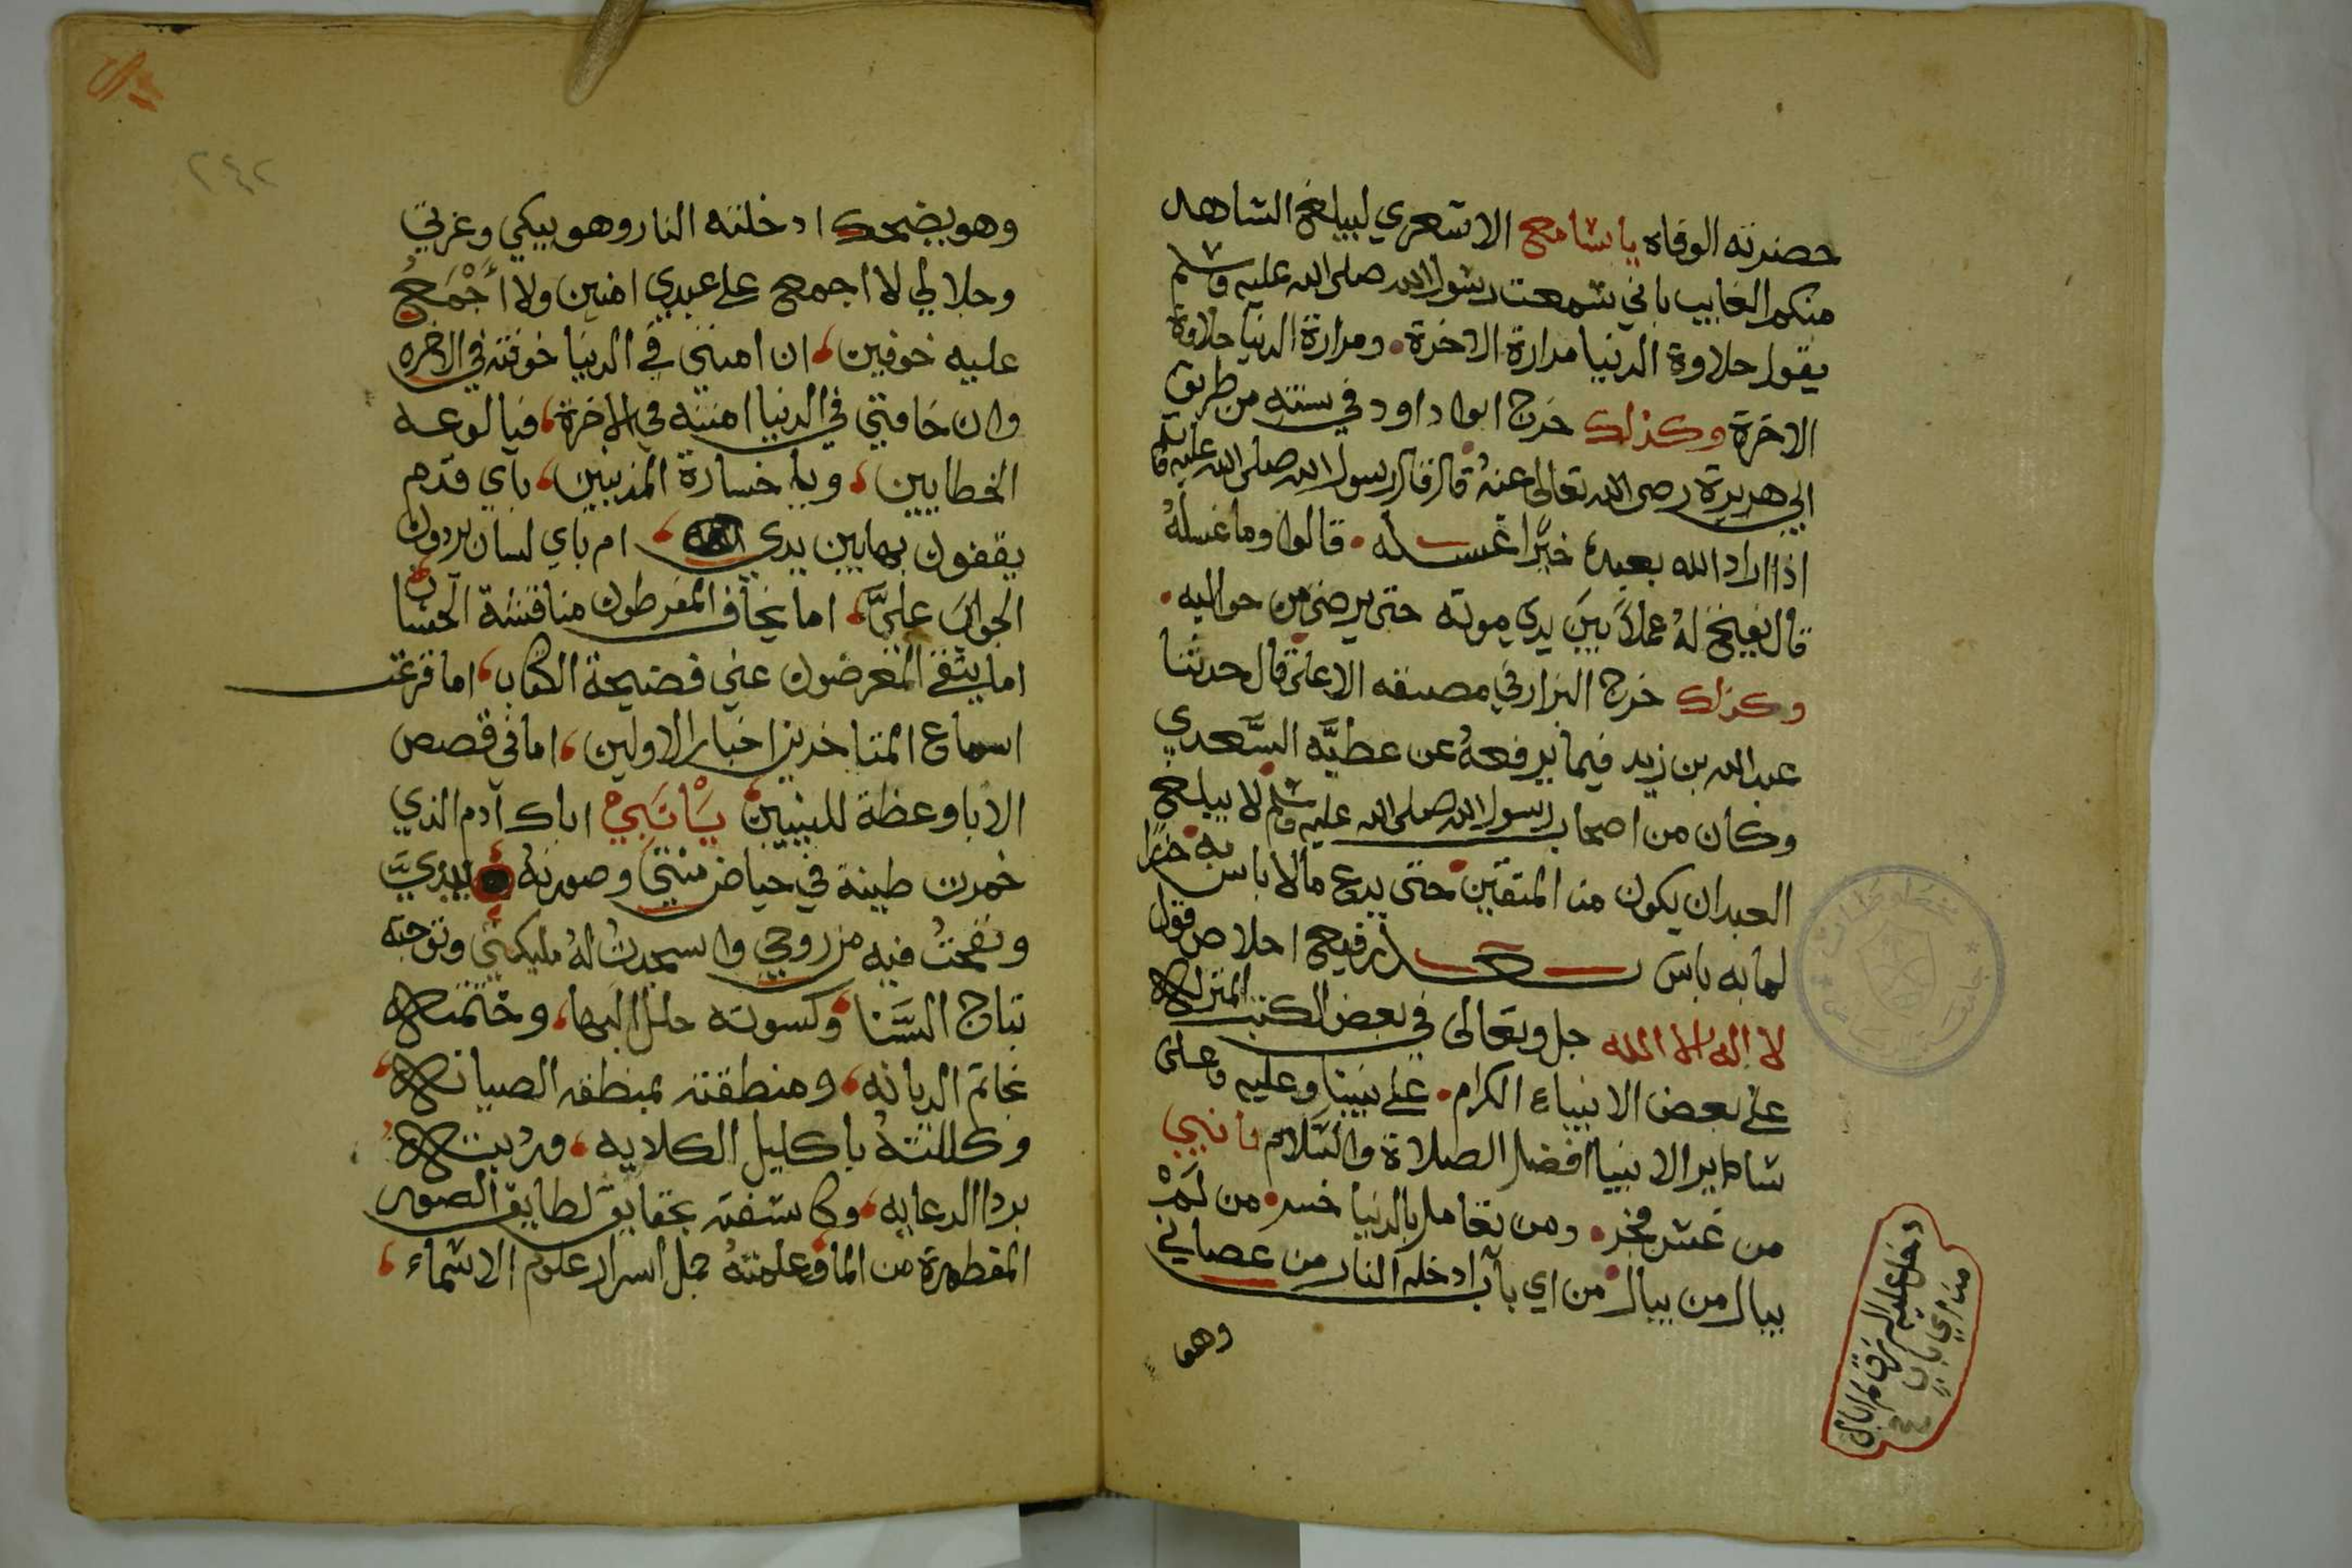 حضرته الوفاه يا سامع الاشعري ليبلغ الشاهد
منكم الغايب باني سمعت رسول الله صلى الله عليه وسلم
يقول حلاوة الدنيا مرارة الاخرة ومرارة الدنيا حلاوة
الاخرة وكذلك خرج ابوا داود في سننه من طريق
ابي هريرة رضى الله تعالى عنه قال قال رسول الله صلى الله عليه وسلم
اذا اراد الله بعبده خيرا غسله قالوا وما غسله
قال يفتح له عملا بين يدي موته حتى يرضى من حواليه
وكذلك خرج البزار في مصنفه الاعلى قال حدثنا
عبد الله بن زيد فيما يرفعه عن عطيه السعدي
وكان من اصحاب رسول الله صلى الله عليه وسلم لا يبلغ
العبد ان يكون من المتقين حتى يدع مالا باس به حذرا
لما به باس رفيع اخلاص قول
لا اله الا الله جل وتعالى في بعض الكتب المنزله
على بعض الانبياء الكرام على نبينا وعليه وعلى
ساير الانبيا افضل الصلاة والسلام يا نبيي
من غش فجر ومن تعامل بالدنيا خسر من لم
يبال من يبال من اي باب ادخله النار من عصاني
وهو
دخل عليه الرزق لم ابال
من اي باب
٢٤٢
وهو يضحك ادخلته النار وهو يبكي وعزتي
وجلالي لا اجمع على عبدي امنين ولا أجمع
عليه خوفين ان امنني في الدنيا خوفته في الاخره
وان خافني في الدنيا امنته في الاخرة فيا لوعه
الخطايين ويا خسارة المذنبين باي قدم
يقفون بها بين يدي ام باي لسان يردون
الجواب علي اما يخاف المفرطون مناقشة الحساب
اما يتقى المعرضون عني فضيحة الكتاب اما قرعت
اسماع المتاخرين اخبار الاولين اما في قصص
الابا وعظة للبنيين يا نبي اباك آدم الذي
خمرت طينة في حياض منتي وصورته بيدي
ونفخت فيه من روحي واسجدت له مليكتي وتوجته
بتاج السنا وكسوته حلل البها وختمته
بخاتم الديانه ومنطقته بمنطقه الصيانه
وكللته باكليل الكلايه ورديته
بردا الرعايه وكاشفته بحقايق لطايق الصور
المفطورة من الما وعلمته جل اسرار علوم الاسماء